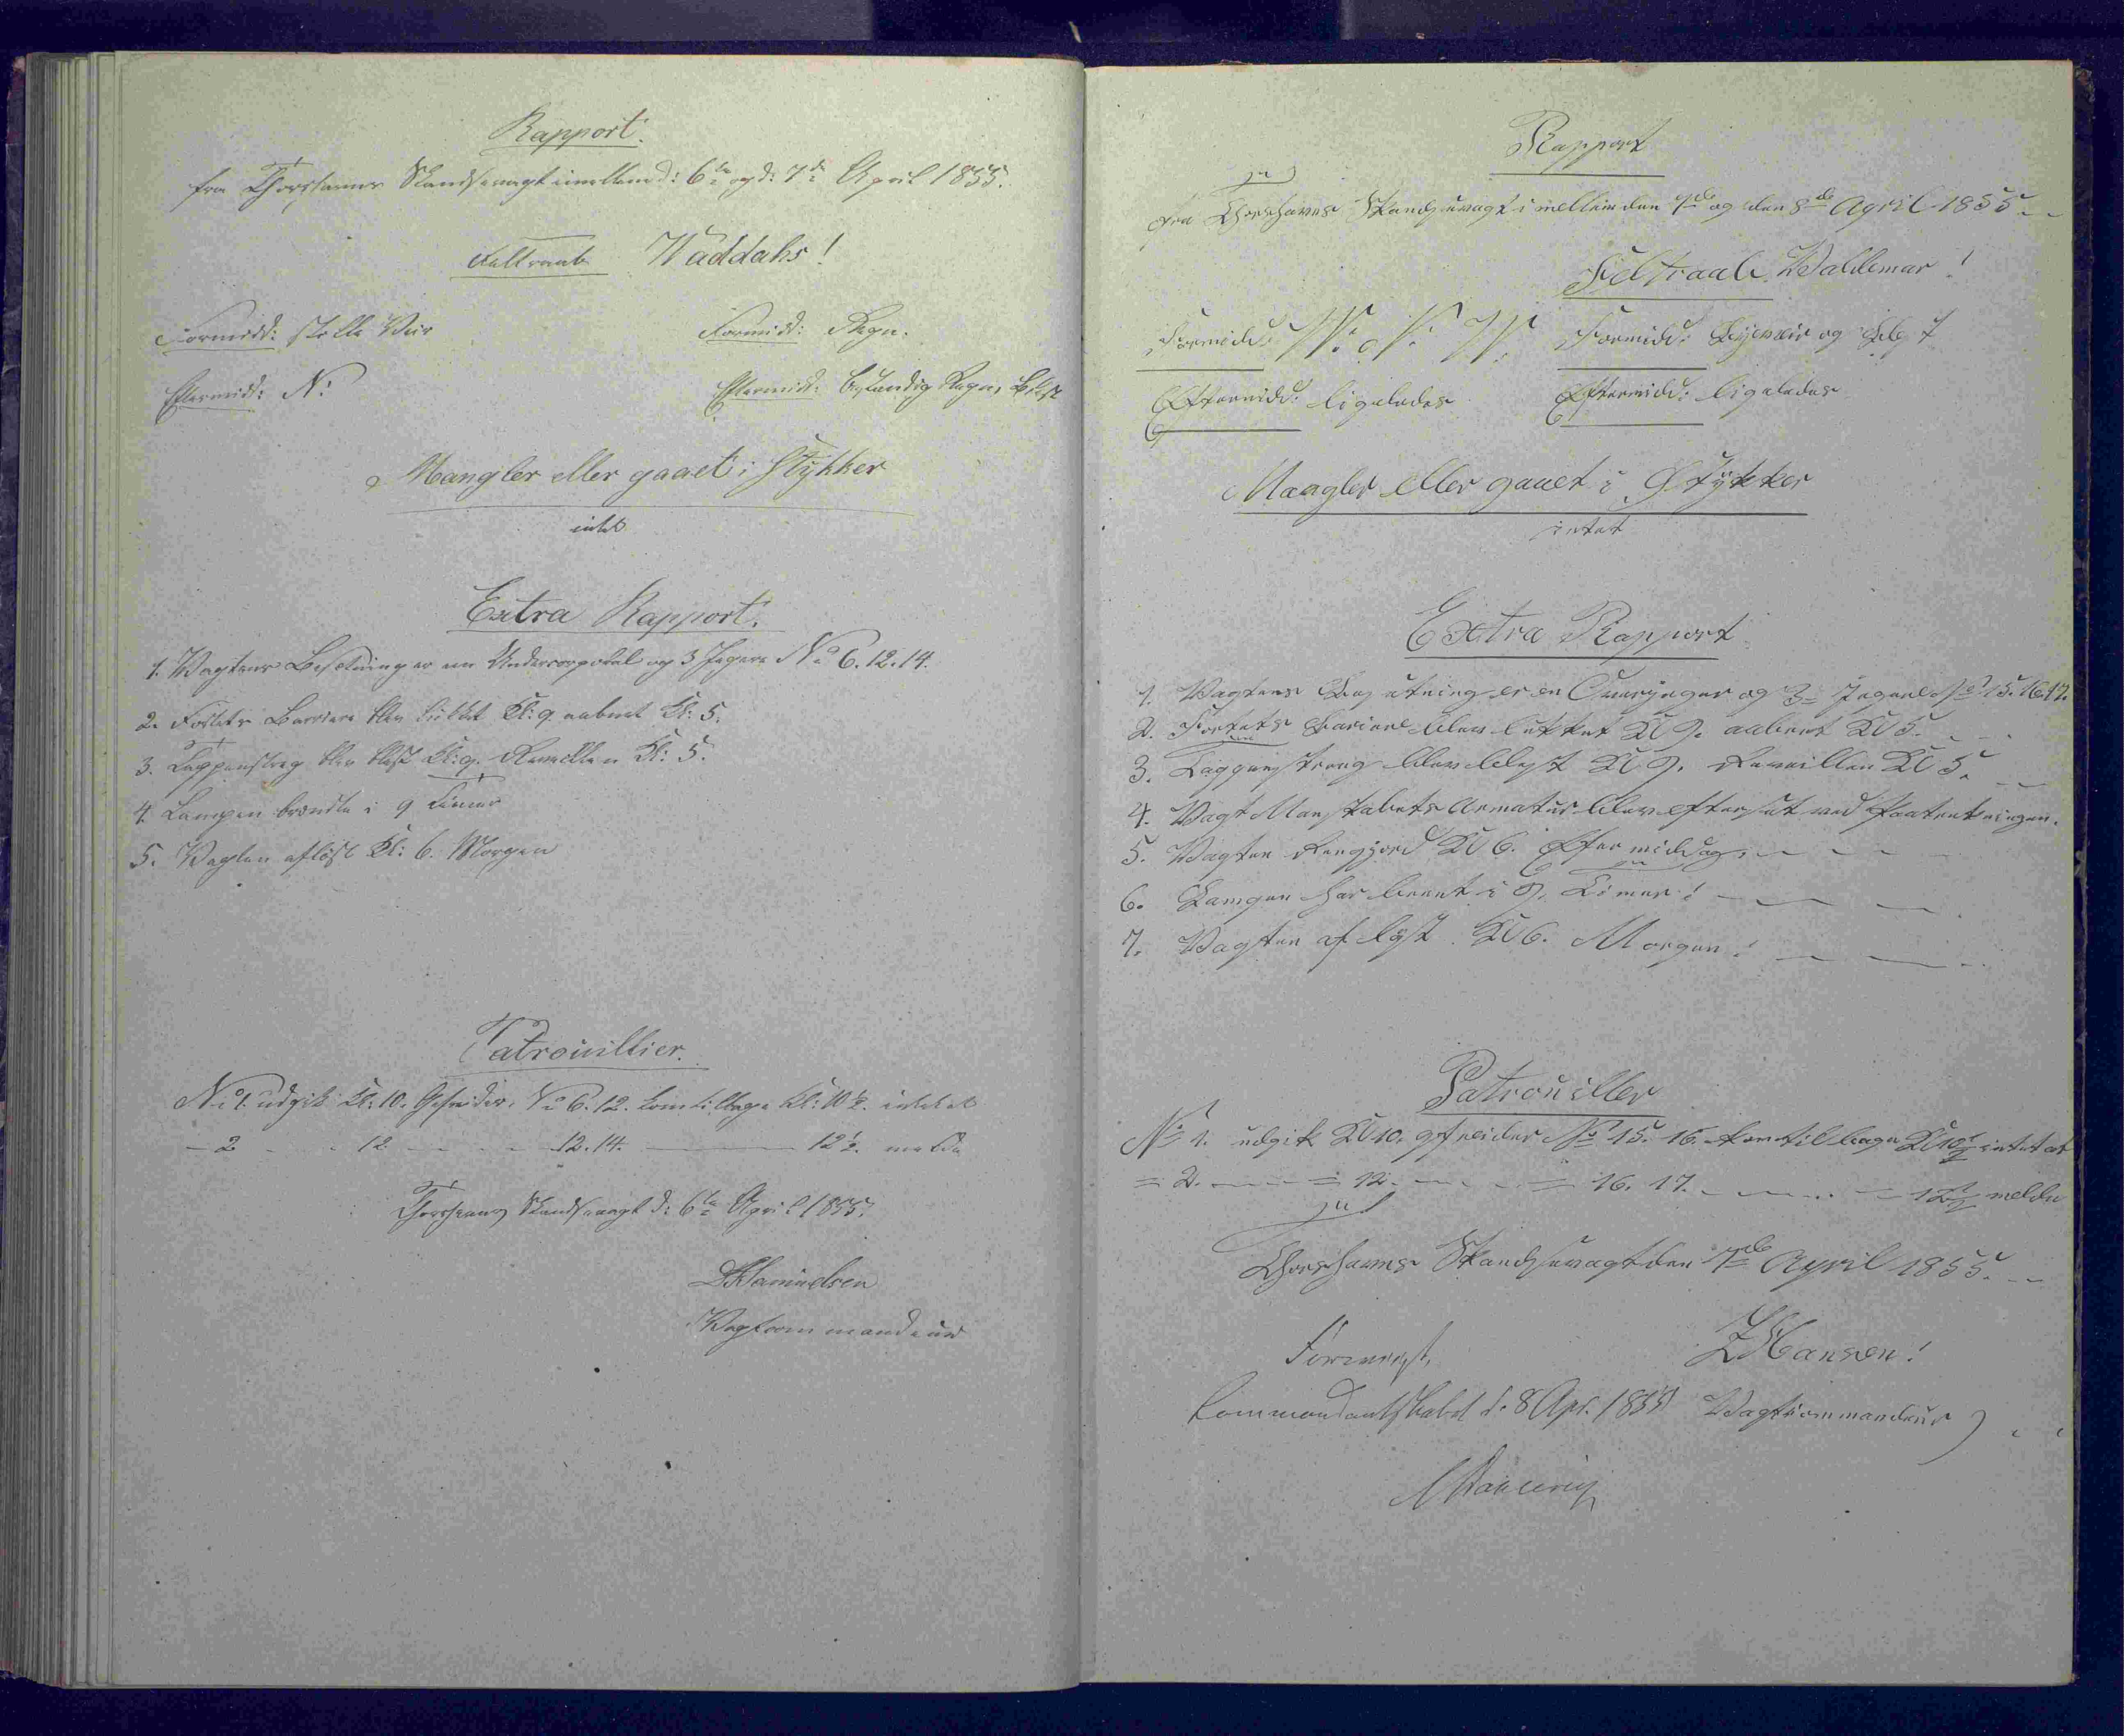 Rapport.
fra Thorshavns Skandsevagt imellem d: 6te og d: 7de April 1855.
Feltraab Waddahs!
Formidd: stille Veir Formidd: Regn.
Eftermidd: N: Eftermidd: bestandig Regn, Blæst
Mangler eller gaaet i Stykker
intet
Extra Rapport.
1. Vagtens Besætning er en Undercorporal og 3 Jægere No 6. 12. 14.
2. Fortets Barriere blev lukket Kl: 9. aabnet Kl: 5.
3. Tappenstreg blev blæst Kl: 9. Reveillen Kl: 5.
4. Lampen brændte i 9 Timer
5. Vagten afløst Kl: 6. Morgen
Patrouillier.
No 1. udgik Kl: 10. Gefreider, No 6. 12. kom tilbage Kl: 10½. intet at
- 2 - - 12 - - - 12. 14. - 12½. melde
Thorshavns Skandsevagt d: 6te April 1855.
DHamindsen
Vagtcommandeur
Rapport
fra Thorshavns Skandsevagt imellem den 7de og den 8de April 1855.
Feltraab. Waldemar!
Formidd: W. N. W. Formidd: Byeveir og
Eftermidd: ligeledes Eftermidd: ligeledes
Mangler eller gaaet i Stykker
intet
Extra Rapport
1. Vagtens Besætning er en Overjæger og 3 Jægere No 15. 16. 17.
2. Fortets Bariere blev lukket Kl 9. aabnet Kl 5.
3. Tappenstreeg blev blæst Kl 9. Reveillen Kl 5.
4. Vagt Manskabets Armatur blev efterset ved Fratrædningen.
5. Vagten Rengjord Kl 6. Eftermiddag.
6. Lampen har brent i 9. Timer!
7. Vagten afløst Kl 6. Morgen!
Patrouiller
No 1. udgik Kl 10. gefreider No 15. 16. kom tilbage Kl 10½ intet at
= 2. - = 12. - = 16. 17. - = 12½ melde
Thorshavns Skandsevagt den 7de April 1855.
Foreviist, ZHansen!
Commandantskabet d. 8 Apr. 1855 Vagtcommandeur